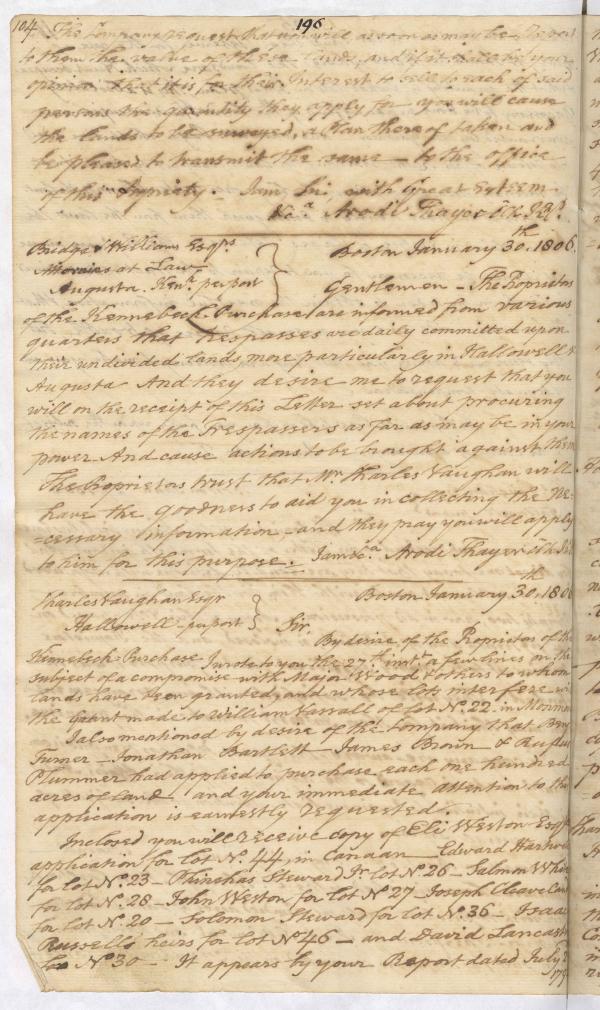 104 196
The Company request that you will as soon as may be Report
to them the value of these Lands, and if it shall be your
opinion that it is for their Interest to sell to each of said
persons the quantity they apply for you will cause
the lands to be surveyed, a Plan thereof taken and
be pleased to transmit the same — to the office
of this Propriety. I am Sir, with Great Esteem
&c.a Arodi Thayer Clk
Bridge & Williams Esqrs Boston January 30.th 1806.
Attornies at Law
Augusta. Ken.k per post Gentlemen — The Proprietors
of the Kennebeck Purchase are informed from various
quarters that trespasses are daily committed upon
their undivided lands more particularly in Hallowell &
Augusta And they desire me to request that you
will on the receipt of this Letter set about procuring
the names of the Trespassers as far as may be in your
power And cause actions to be brought against them
The Proprietors trust that Mr. Charles Vaughan will
have the goodness to aid you in collecting the Ne=
=cessary information — and they pray you will apply
to him for this purpose. I am &c.a Arodi Thayer Clk
Boston January 30.th 1806
Charles Vaughan Esqr
Hallowell — per post Sir,
By desire of the Proprietors of the
Kennebeck Purchase I wrote to you the 27.th inst. a few lines on the
subject of a compromise with Major Wood & others to whom
lands have been granted, and whose lots interfere with
the grant made to William Vassall of Lot No. 22. in
I also mentioned by desire of the Company that Benj
Turner — Jonathan Bartlett — James Brown & Rufus
Plummer had applied to purchase each one hundred
acres of land and your immediate attention to this
application is earnestly requested.
Inclosed you will receive copy of Eli Weston Esqrs
application for Lot No. 44, in Canaan — Edward
for lot No. 23 — Phinehas Steward Jr. lot No 26 — Salmon White
for lot No. 28 — John Weston for lot No 27 — Joseph Cleaveland
for lot No. 20 — Solomon Steward for lot No. 36 — Isaac
Russell's heirs for lot No 46 — and David Lancaster
No 30 — It appears by your Report dated July